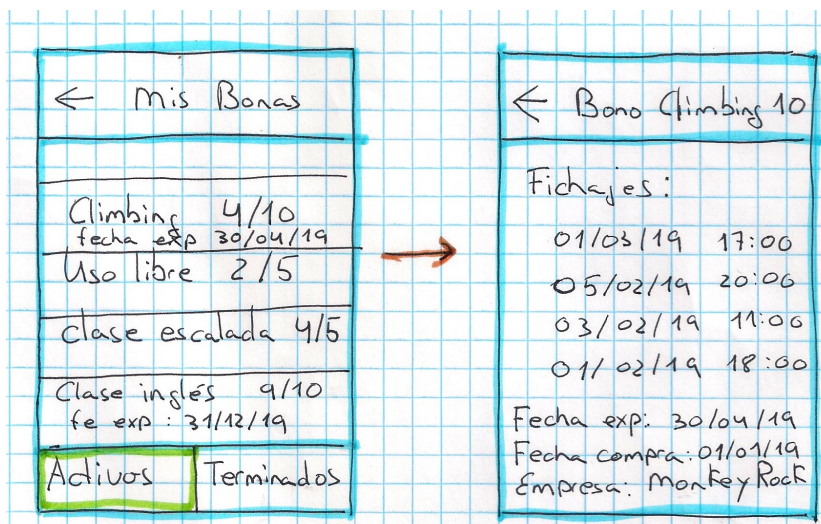 ← Mis Bonos
Climbing 4/10
fecha exp 30/04/19
Uso libre 2/5
clase escalada 4/5
Clase inglés 9/10
fe exp : 31/12/19
Activos Terminados
← Bono Climbing 10
Fichajes:
01/03/19 17:00
05/02/19 20:00
03/02/19 11:00
01/02/19 18:00
Fecha exp: 30/04/19
Fecha compra: 01/01/19
Empresa: Monkey Rock